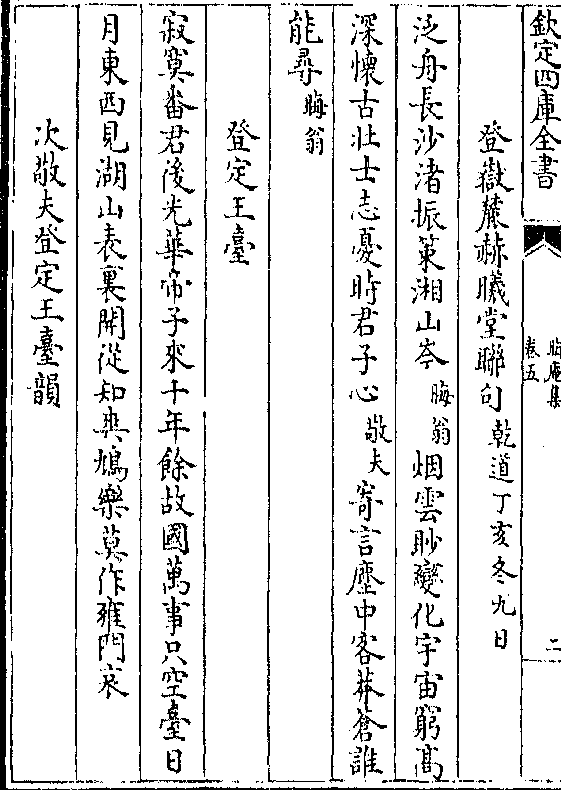 欽定四庫全書
晦庵集
卷五
二
登嶽麓赫曦堂聯句乾道丁亥冬九日
泛舟長沙渚振策湘山岑晦翁烟雲眇變化宇宙窮高
深懷古壯士志憂時君子心敬夫寄言塵中客莽蒼誰
能尋晦翁
登定王臺
寂寞番君後光華帝子來千年餘故國萬事只空臺日
月東西見湖山表裏開從知爽鳩樂莫作雍門哀
次敬夫登定王臺韻